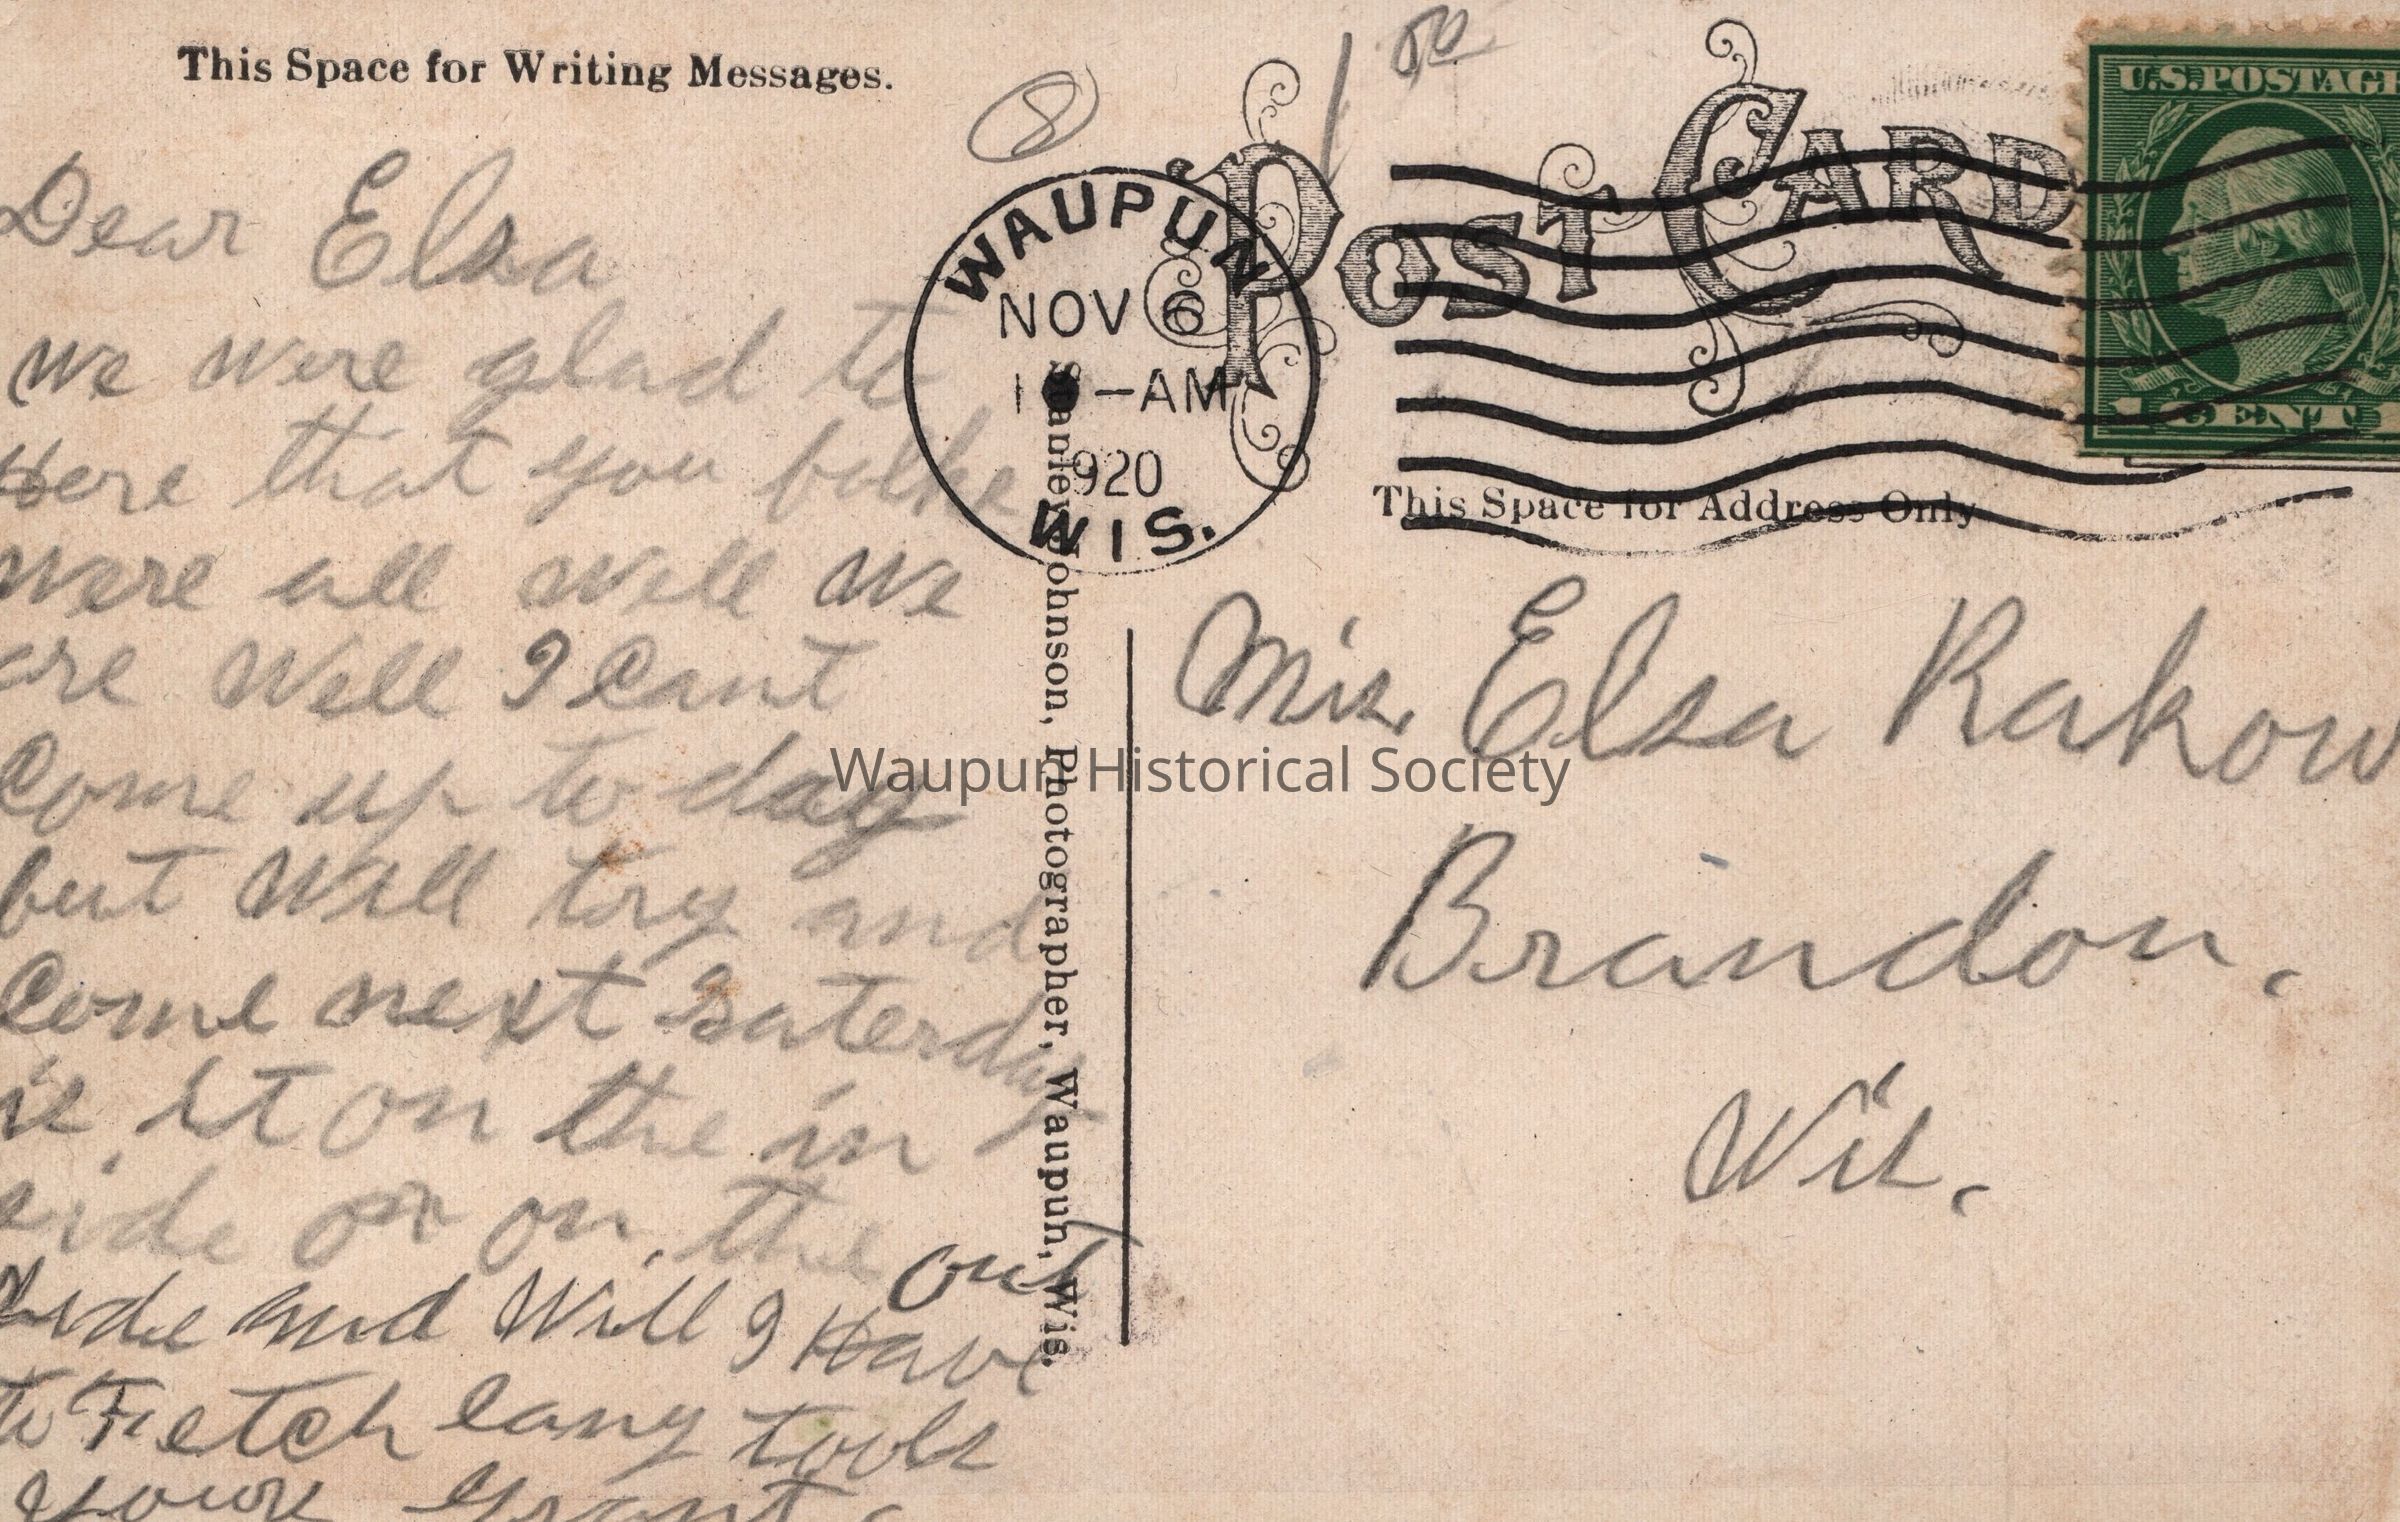 This Space for Writing Messages.
8
POST CARD
U.S. POSTAGE
1 CENT 1
WAUPUN
NOV 6
-AM
1920
WIS.
This Space for Address Only
Dear Elsa
We were glad to
Here that you folks
were all well we
are well I Cant
Come up to day
but will try and
Come next Saterday
is it on the in
side or on the out
side and Will I Have
to Fetch eany tools
youre Grant.
Mis. Elsa Rakow
Brandon.
Wis.
Stanley Johnson, Photographer, Waupun, Wis.
Waupun Historical Society